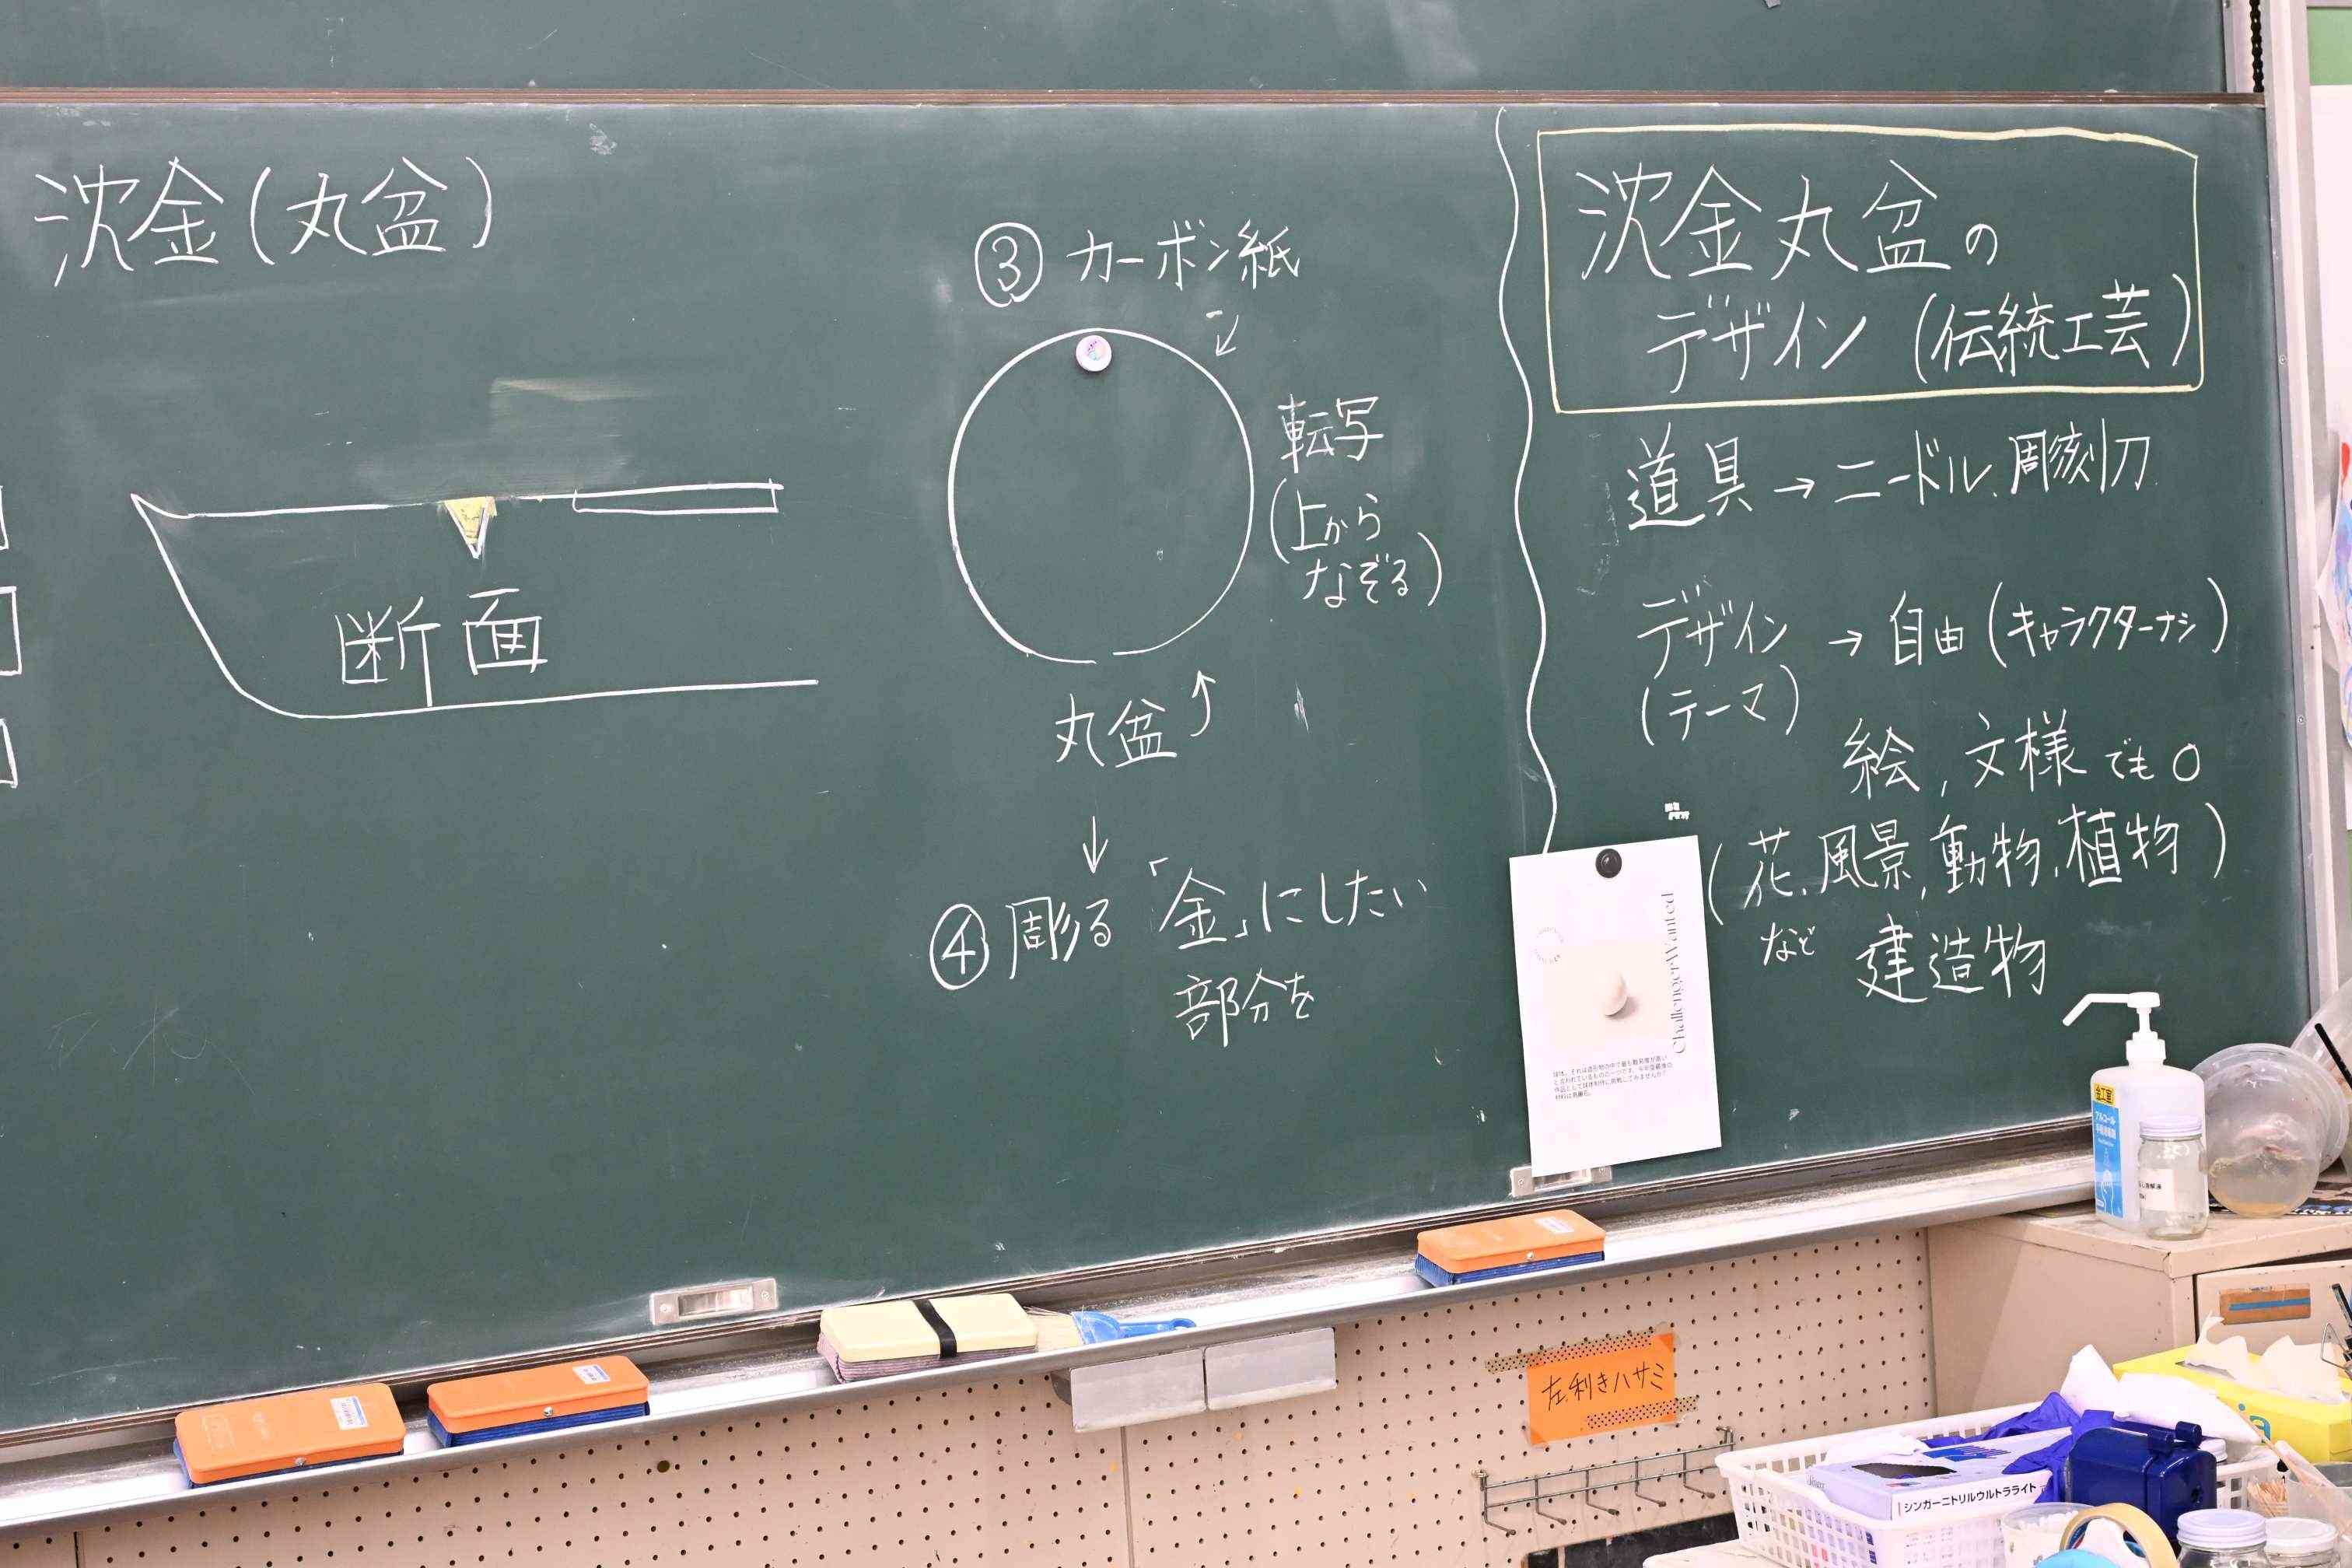 沈金(丸盆)
断面
③ カーボン紙
転写
(上から
なぞる)
丸盆
④ 彫る 「金」にしたい
部分を
沈金丸盆の
デザイン (伝統工芸)
道具 → ニードル、彫刻刀
デザイン → 自由 (キャラクターナシ)
(テーマ)
絵, 文様でも○
(花、風景、動物、植物)
など 建造物
ChallengerWanted
左利きハサミ
アルコール
シンガーニトリルウルトラライト